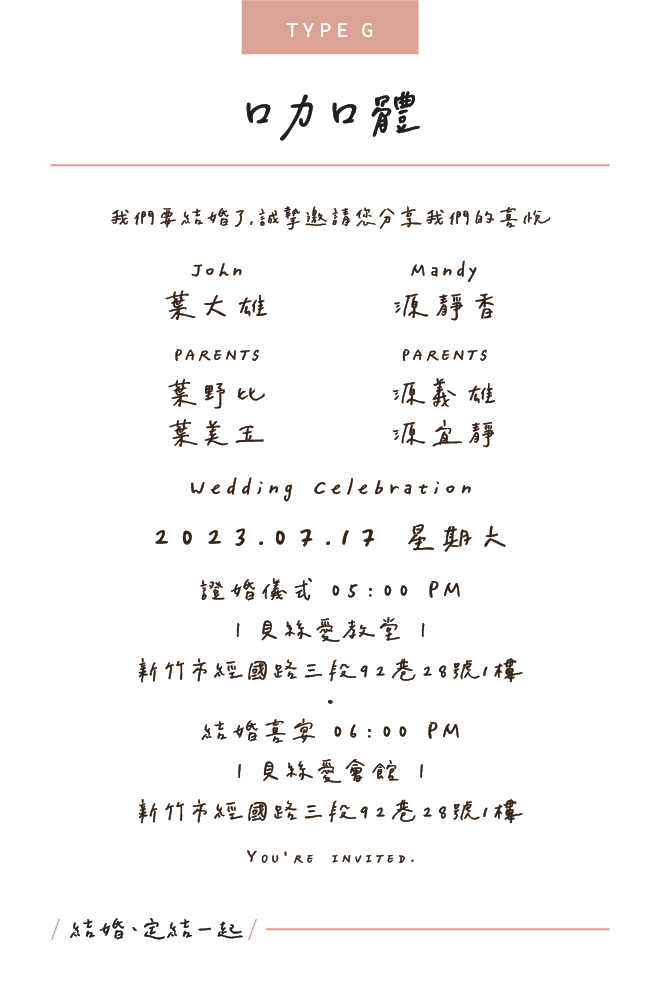 TYPE G
口力口體
我們要結婚了,誠摯邀請您分享我們的喜悅
John
Mandy
葉大雄
源靜香
PARENTS
PARENTS
葉野比
源義雄
葉美玉
源宜靜
Wedding Celebration
2023.07.17 星期六
證婚儀式 05:00 PM
| 貝絲愛教堂 |
新竹市經國路三段92巷28號1樓
·
結婚喜宴 06:00 PM
| 貝絲愛會館 |
新竹市經國路三段92巷28號1樓
YOU'RE INVITED.
/ 結婚、定結一起 /